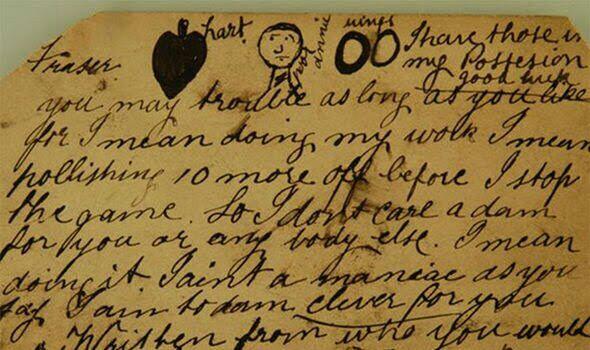 hart
poor annie
rings
I have those in
my Possesion
good luck
Fraser
you may trouble as long as you like
for I mean doing my work I mean
pollishing 10 more off before I stop
the game. So I dont care a dam
for you or any body else. I mean
doing it. I aint a maniac as you
say I am to dam clever for you
Written from who you would